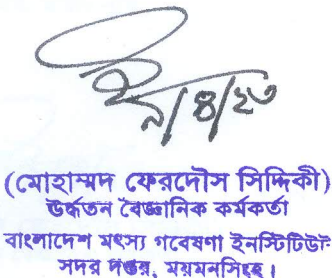 ৯/৪/২৩
(মোহাম্মদ ফেরদৌস সিদ্দিকী)
ঊর্ধ্বতন বৈজ্ঞানিক কর্মকর্তা
বাংলাদেশ মৎস্য গবেষণা ইনস্টিটিউট
সদর দপ্তর, ময়মনসিংহ।